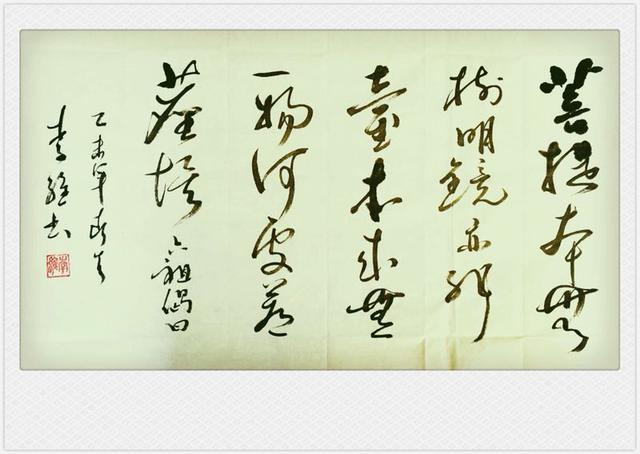 菩提本無
樹明鏡亦非
臺本來無
一物何處惹
塵埃 六祖偈曰
乙未年春
李 书